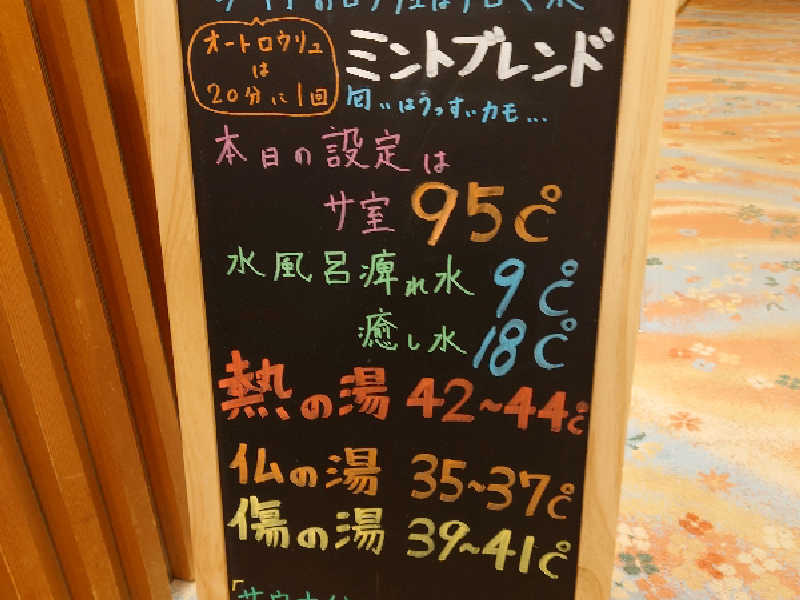 オートロウリュ
は
20分に1回
ミントブレンド
本日の設定は
サ室 95℃
水風呂 痺れ水 9℃
癒し水 18℃
熱の湯 42~44℃
仏の湯 35~37℃
傷の湯 39~41℃